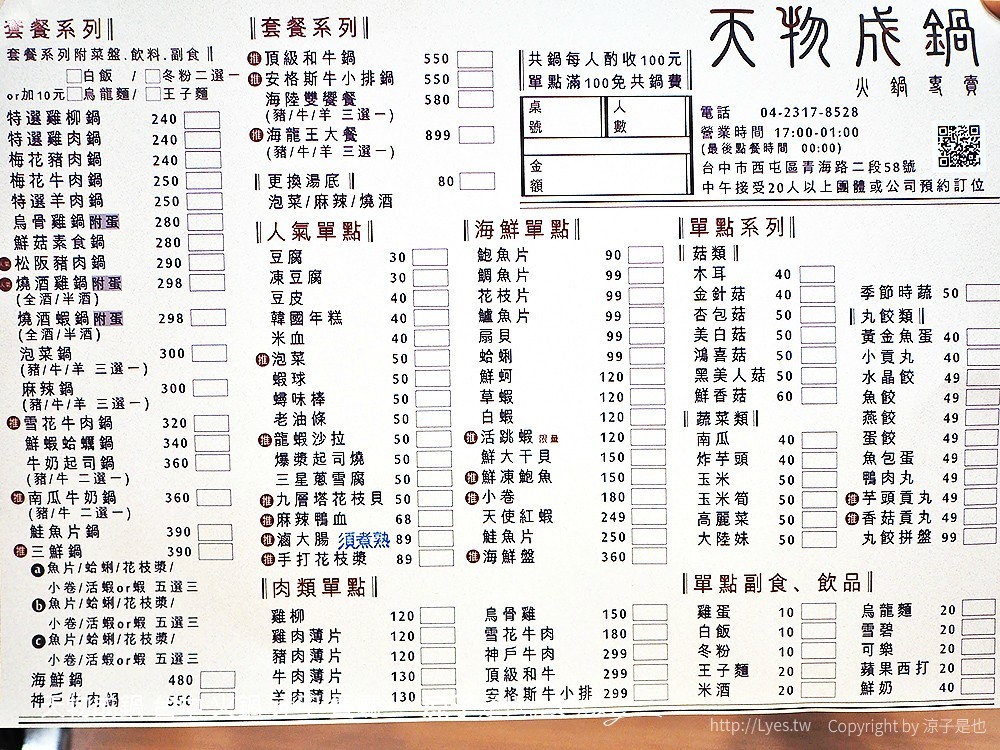 套餐系列
套餐系列附菜盤.飲料.副食
白飯 / 冬粉二選一
or加10元 烏龍麵/ 王子麵
特選雞柳鍋 240
特選雞肉鍋 240
梅花豬肉鍋 240
梅花牛肉鍋 250
特選羊肉鍋 250
烏骨雞鍋附蛋 280
鮮菇素食鍋 280
松阪豬肉鍋 290
燒酒雞鍋附蛋 298
(全酒/半酒)
燒酒蝦鍋附蛋 298
(全酒/半酒)
泡菜鍋 300
(豬/牛/羊 三選一)
麻辣鍋 300
(豬/牛/羊 三選一)
推 雪花牛肉鍋 320
鮮蝦蛤蠣鍋 340
牛奶起司鍋 360
(豬/牛 二選一)
推 南瓜牛奶鍋 360
(豬/牛 二選一)
鮭魚片鍋 390
推 三鮮鍋 390
a 魚片/蛤蜊/花枝漿/
小卷/活蝦or蝦 五選三
b 魚片/蛤蜊/花枝漿/
小卷/活蝦or蝦 五選三
c 魚片/蛤蜊/花枝漿/
小卷/活蝦or蝦 五選三
海鮮鍋 480
神戶牛肉鍋 550
套餐系列
推 頂級和牛鍋 550
推 安格斯牛小排鍋 550
海陸雙饗餐 580
(豬/牛/羊 三選一)
推 海龍王大餐 899
(豬/牛/羊 三選一)
更換湯底 80
泡菜/麻辣/燒酒
共鍋每人酌收100元
單點滿100免共鍋費
桌號 人數
金額
天物成鍋
火鍋專賣
電話 04-2317-8528
營業時間 17:00-01:00
(最後點餐時間 00:00)
台中市西屯區青海路二段58號
中午接受20人以上團體或公司預約訂位
人氣單點
豆腐 30
凍豆腐 30
豆皮 40
韓國年糕 40
米血 40
推 泡菜 50
蝦球 50
蟳味棒 50
老油條 50
推 龍蝦沙拉 50
爆漿起司燒 50
三星蔥雪腐 50
推 九層塔花枝貝 50
推 麻辣鴨血 68
推 滷大腸 須煮熟 89
推 手打花枝漿 89
海鮮單點
鮑魚片 90
鯛魚片 99
花枝片 99
鱸魚片 99
扇貝 99
蛤蜊 99
鮮蚵 120
草蝦 120
白蝦 120
推 活跳蝦 限量 120
鮮大干貝 150
推 鮮凍鮑魚 150
推 小卷 180
天使紅蝦 249
鮭魚片 250
推 海鮮盤 360
單點系列
菇類
木耳 40
金針菇 40
杏包菇 50
美白菇 50
鴻喜菇 50
黑美人菇 50
鮮香菇 60
蔬菜類
南瓜 40
炸芋頭 40
玉米 50
玉米筍 50
高麗菜 50
大陸妹 50
季節時蔬 50
丸餃類
黃金魚蛋 40
小貢丸 40
水晶餃 49
魚餃 49
燕餃 49
蛋餃 49
魚包蛋 49
鴨肉丸 49
推 芋頭貢丸 49
推 香菇貢丸 49
丸餃拼盤 99
肉類單點
雞柳 120
雞肉薄片 120
豬肉薄片 120
牛肉薄片 130
羊肉薄片 130
烏骨雞 150
雪花牛肉 180
神戶牛肉 299
頂級和牛 299
安格斯牛小排 299
單點副食、飲品
雞蛋 10
白飯 10
冬粉 10
王子麵 20
米酒 20
烏龍麵 20
雪碧 20
可樂 20
蘋果西打 20
鮮奶 40
http://Lyes.tw Copyright by 涼子是也